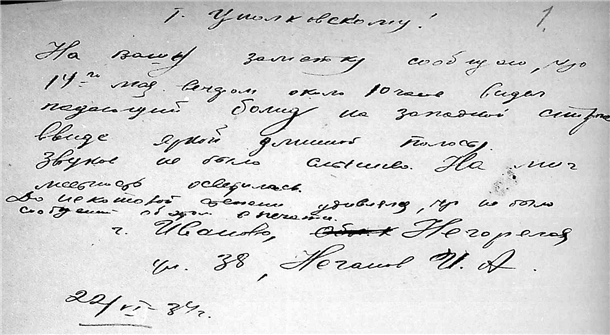 т. Циолковскому! 1.
На вашу заметку сообщаю, что
14го мая вечером около 10 часов видел
падающий болид на западной стороне
ввиде яркой длинной полосы.
Звуков не было слышно. На миг
местность осветилась.
До некоторой степени удивляюсь, что не было
сообщений об этом в печати.
г. Иваново, Негорелая
ул. 38, Нечаев И. А.
22/VI-34г.